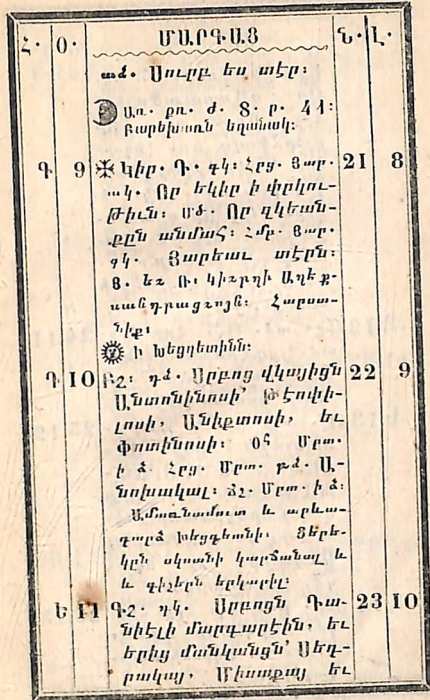 Հ․ Օ․ ՄԱՐԳԱՑ Ն․ Լ․
ած․ Սուրբ ես տէր։
Առ․ քռ․ ժ․ Ց․ ր․ 41։
Բարեխառն եղանակ։
Գ 9 Կիր․ Դ․ գկ։ Հրց․ Յար․ 21 8
ակ․ Որ եկիր ի փրկու֊
թիւն։ Մծ․ Որ զկեան֊
քըն անմահ։ Հմբ․ Յար․
գկ․ Յարեաւ տէրն։
Յ․ եւ Ռ․ կիւրղի Աղեք֊
սանդրացւոյն։ Հարսա֊
նիք։
Ի Խեցգետինն։
Դ 10 Բշ․ դձ․ Սրբոց վկայիցն 22 9
Անտոնինոսի՝ Թէոփի֊
լոսի, Անիքտոսի, եւ
Փոտինոսի։ Օհ Մրտ․
ի ձ․ Հրց․ Մրտ․ բձ․ Ա֊
նոխակալ։ Ճշ․ Մրտ․ ի ձ։
Ամառնամուտ և արևա֊
դարձ խեցգետնի․ Ցերե֊
կըն սկսանի կարճանալ և
և գիշերն երկարիլ։
Ե 11 Գշ․ դկ․ Սրբոցն Դա֊ 23 10
նիէլի մարգարէին, եւ
երից մանկանցն՝ Սեդ֊
րակայ, Միսաքայ եւ